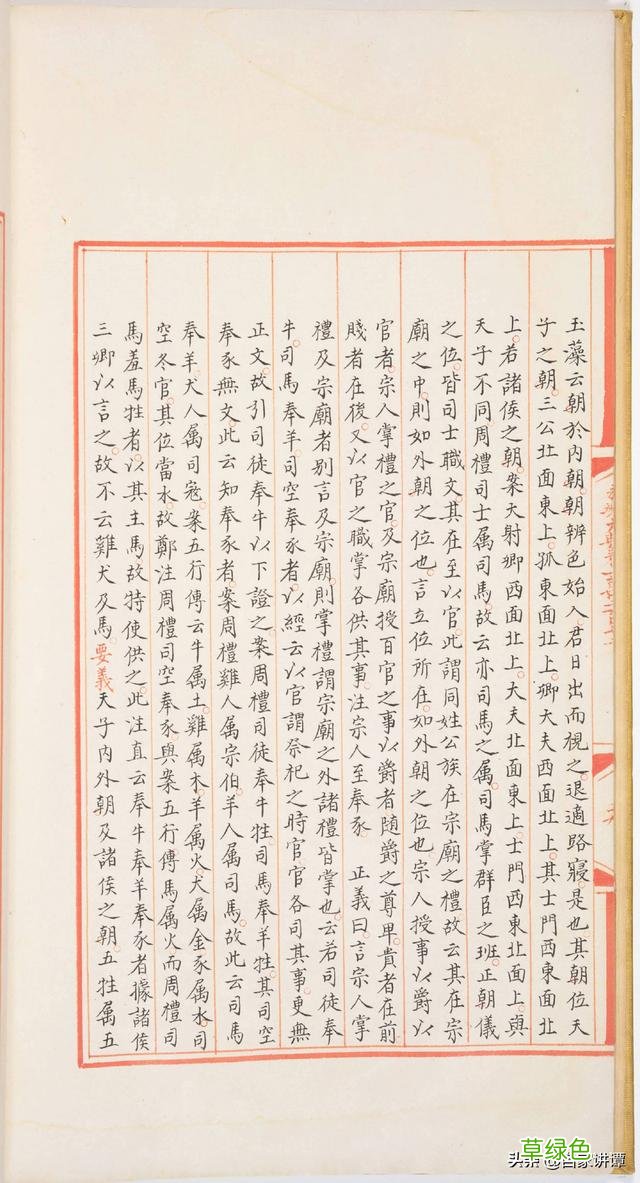 玉藻云朝於内朝朝辨色始入君日出而視之退適路寢是也其朝位天
子之朝三公北面東上孤東面北上卿大夫西面北上其士門西東面北
上若諸侯之朝案大射卿西面北上大夫北面東上士門西東北面上與
天子不同周禮司士属司馬故云亦司馬之属司馬掌群臣之班正朝儀
之位皆司士職文其在至以官此謂同姓公族在宗廟之禮故云其在宗
廟之中則如外朝之位也言立位所在如外朝之位也宗人授事以爵以
官者宗人掌禮之官及宗廟授百官之事以爵者随爵之尊卑貴者在前
賤者在後又以官之職掌各供其事注宗人至奉豕 正義曰言宗人掌
禮及宗廟者别言及宗廟則掌禮謂宗廟之外諸禮皆掌也云若司徒奉
牛司馬奉羊司空奉豕者以經云以官謂祭祀之時官官各司其事更無
正文故引司徒奉牛以下證之案周禮司徒奉牛牲司馬奉羊牲其司空
奉豕無文此云知奉豕者案周禮雞人属宗伯羊人属司馬故此云司馬
奉羊犬人属司寇案五行傳云牛属土雞属木羊属火犬属金豕属水司
空冬官其位當水故鄭注周禮司空奉豕與案五行傳馬属火而周禮司
馬羞馬牲者以其主馬故特使供之此注直云奉牛奉羊奉豕者據諸侯
三卿以言之故不云雞犬及馬要義天子内外朝及諸侯之朝五牲属五
草绿色
头条 @百家讲谭